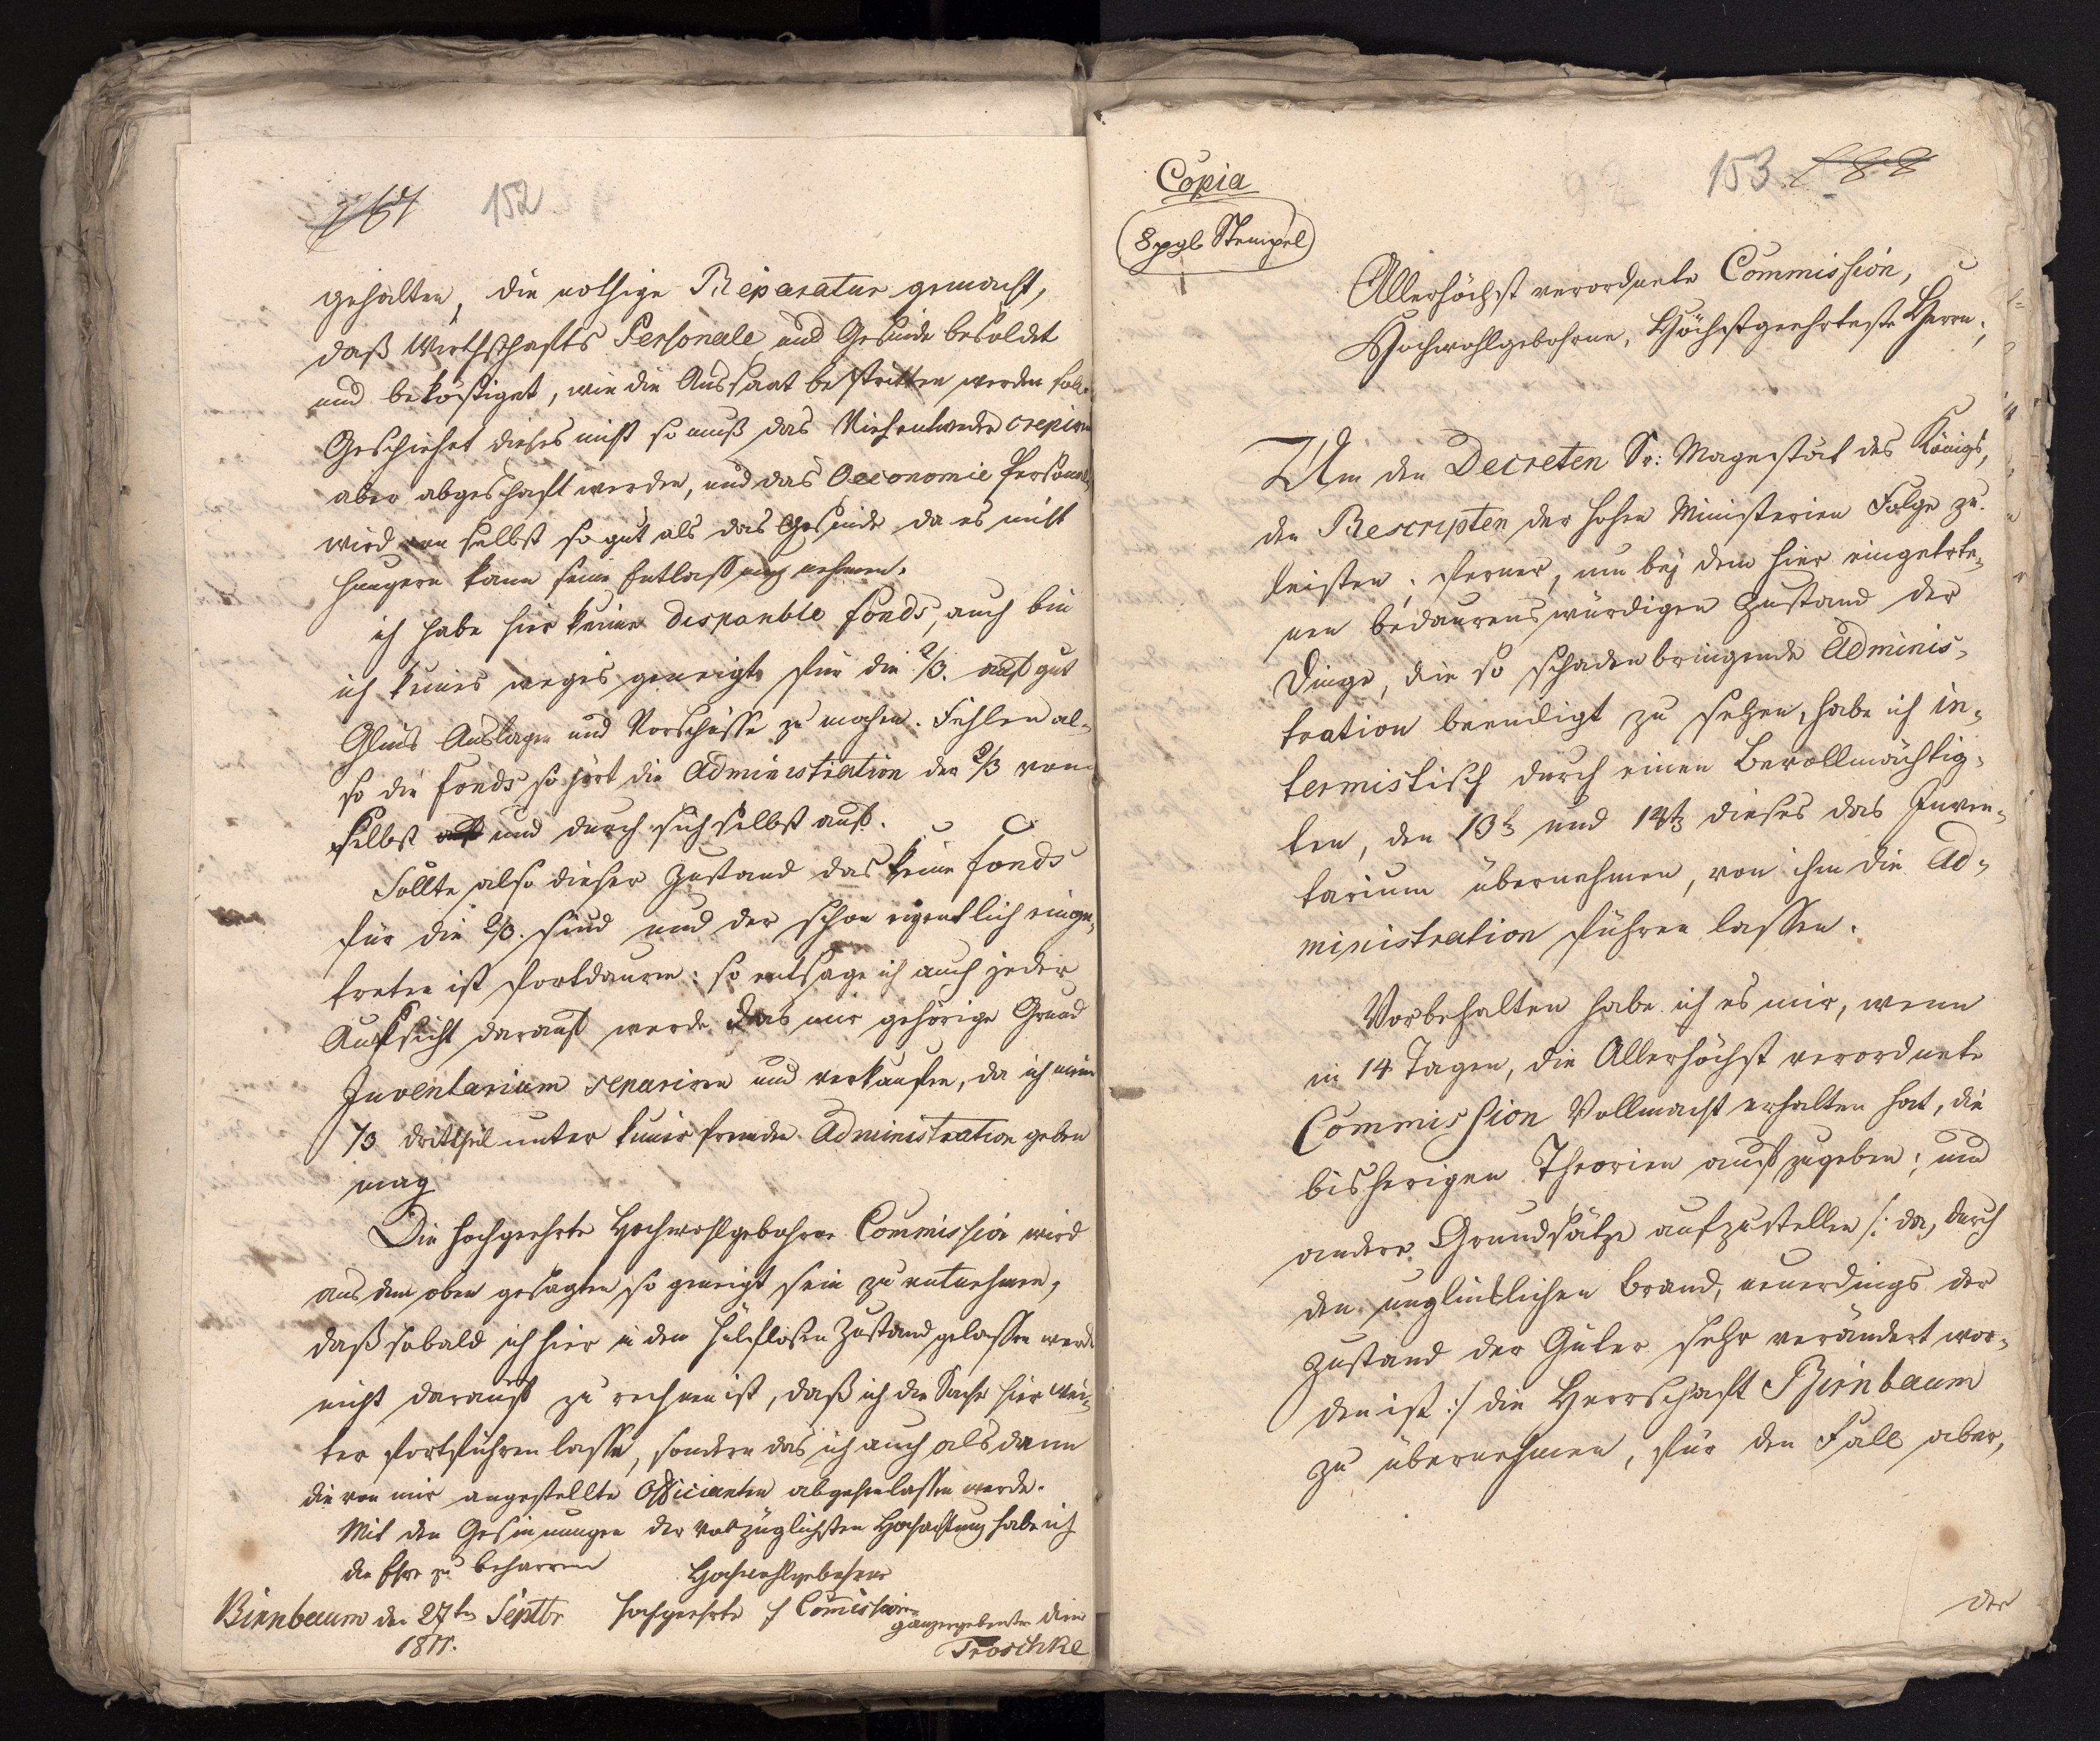 152
gehalten, die nothige Réparatur gemacht,
daß Wirthschafts Personale und Gesinde besoldet
und beköstiget, wie die Aussaat bestritten werden soll
Geschiehet dieses nicht so muß das Vieh entweder crepiren
aber abgeschaft werden, und das Oeconomie Personale
wird von selbst so gut als das Gesinde da es nicht
hungern kann seine Entlassung nehmen.
ich habe hier keine disponble fonds, auch bin
ich keines weges geneigt für die 2/3. auf gut
Glück Auslagen und Vorschüsse zu machen. Fehlen al-
so die fonds so hört die Administration der 2/3 von
selbst und durch sich selbst auf.
Sollte also dieser Zustand das keine fonds
für die 2/3. sind und der schon eigentlich einge-
treten ist fortdauren: so entsage ich auch jeder
Aufsicht darauf werde das mir gehörige Grund
Inventarium separiren und verkaufen, da ich mein
1/3 drittheil unter keiner fremden Administration geben
mag
Die hochgeehrte Hochwohlgebohrne Commission wird
aus dem oben gesagten so geneigt sein zu entnehmen,
daß sobald ich hier in dem hülflosen Zustand gelassen werde
nicht darauf zu rechnen ist, daß ich die Sache hier wei-
ter fortführen lasse, sondern das ich auch als dann
die von mir angestellte Officianten abgehen lassen werde.
Mit den Gesinnungen der vorzüglichsten Hochachtung habe ich
die Ehre zu beharren
Hochwohlgebohrne
Birnbaum den 27ten Septbr hochgeehrte Comission
ganz ergebenster Diener
1811.
Troschke
Copia
153
8 pgl Stempel
Allerhöchst verordnete Commission,
Hochwohlgebohrne, Höchstgeehrteste Herrn;
Um den Decreten Sr: Magestät des Königs,
den Rescripten der hohen Ministerien Folge zu
leisten; ferner, um bej dem hier eingetrte-
nen bedaurenswürdigen Zustand der
Dinge, die so schadenbringende Adminis-
tration beendigt zu sehen, habe ich in-
termistisch durch einen Bevollmächtig-
ten, den 13t und 14t dieses das Inven-
tarium übernehmen, von ihm die Ad-
ministration führen lassen.
Vorbehalten habe ich es mir, wenn
in 14 Tagen, die Allerhöchst verordnete
Commission Vollmacht erhalten hat, die
bisherigen Theorien aufzugeben; und
andere Grundsätze aufzustellen /: da, durch
den unglücklichen Brand, neuerdings der
Zustand der Güter sehr verändert wor-
den ist :/ die Herrschaft Birnbaum
zu übernehmen, für den Fall aber,
der